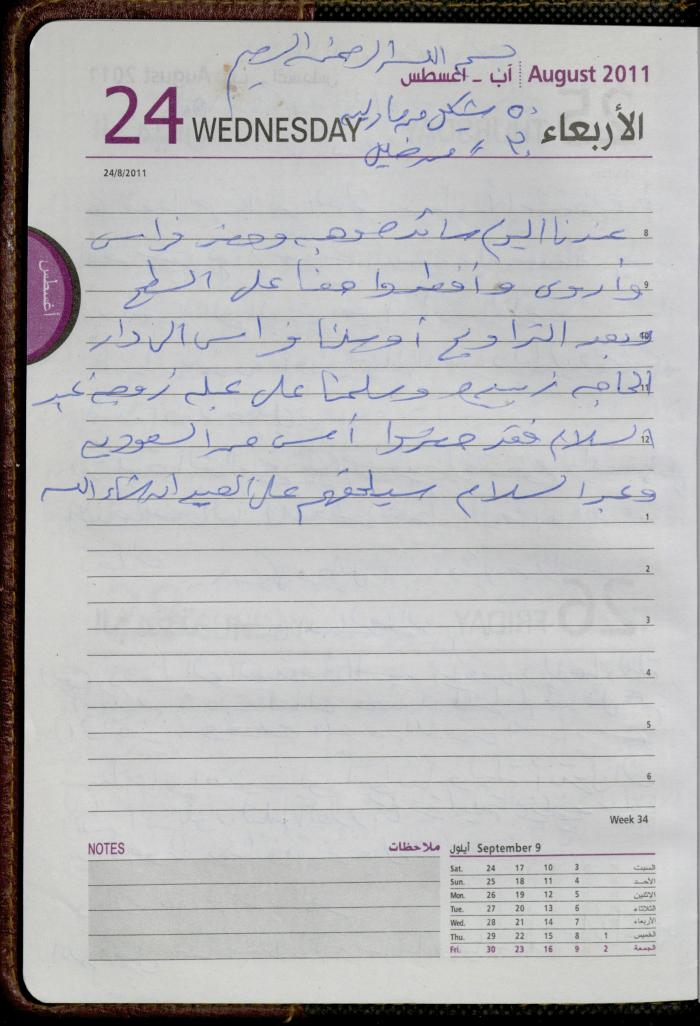 بسم الله الرحمن الرحيم
آب - أغسطس August 2011
24 WEDNESDAY الأربعاء
50 شيكل من ماريه
30 " من
24/8/2011
8 عندنا اليوم سائد ضو وحضر فراس
9 وأروى وأفطروا معنا على السطح
10 وبعد التراويح أوصلنا فراس الى دار
11 الحاجه زينب وسلمنا على عبله زوجة عبد
12 السلام فقد حضروا أمس من السعوديه
وعبد السلام سيلحقهم على العيد ان شاء الله
1
2
3
4
5
6
أغسطس
Week 34
NOTES ملاحظات
أيلول September 9
Sat. 24 17 10 3 السبت
Sun. 25 18 11 4 الأحد
Mon. 26 19 12 5 الاثنين
Tue. 27 20 13 6 الثلاثاء
Wed. 28 21 14 7 الأربعاء
Thu. 29 22 15 8 1 الخميس
Fri. 30 23 16 9 2 الجمعة